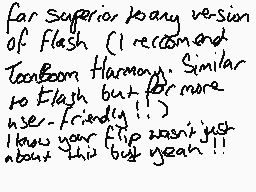 far superior to any version
of flash (I reccomend
ToonBoom Harmony. Similar
to Flash but far more
user-friendly!!)
I know your flip wasn't just
about this but yeah!!